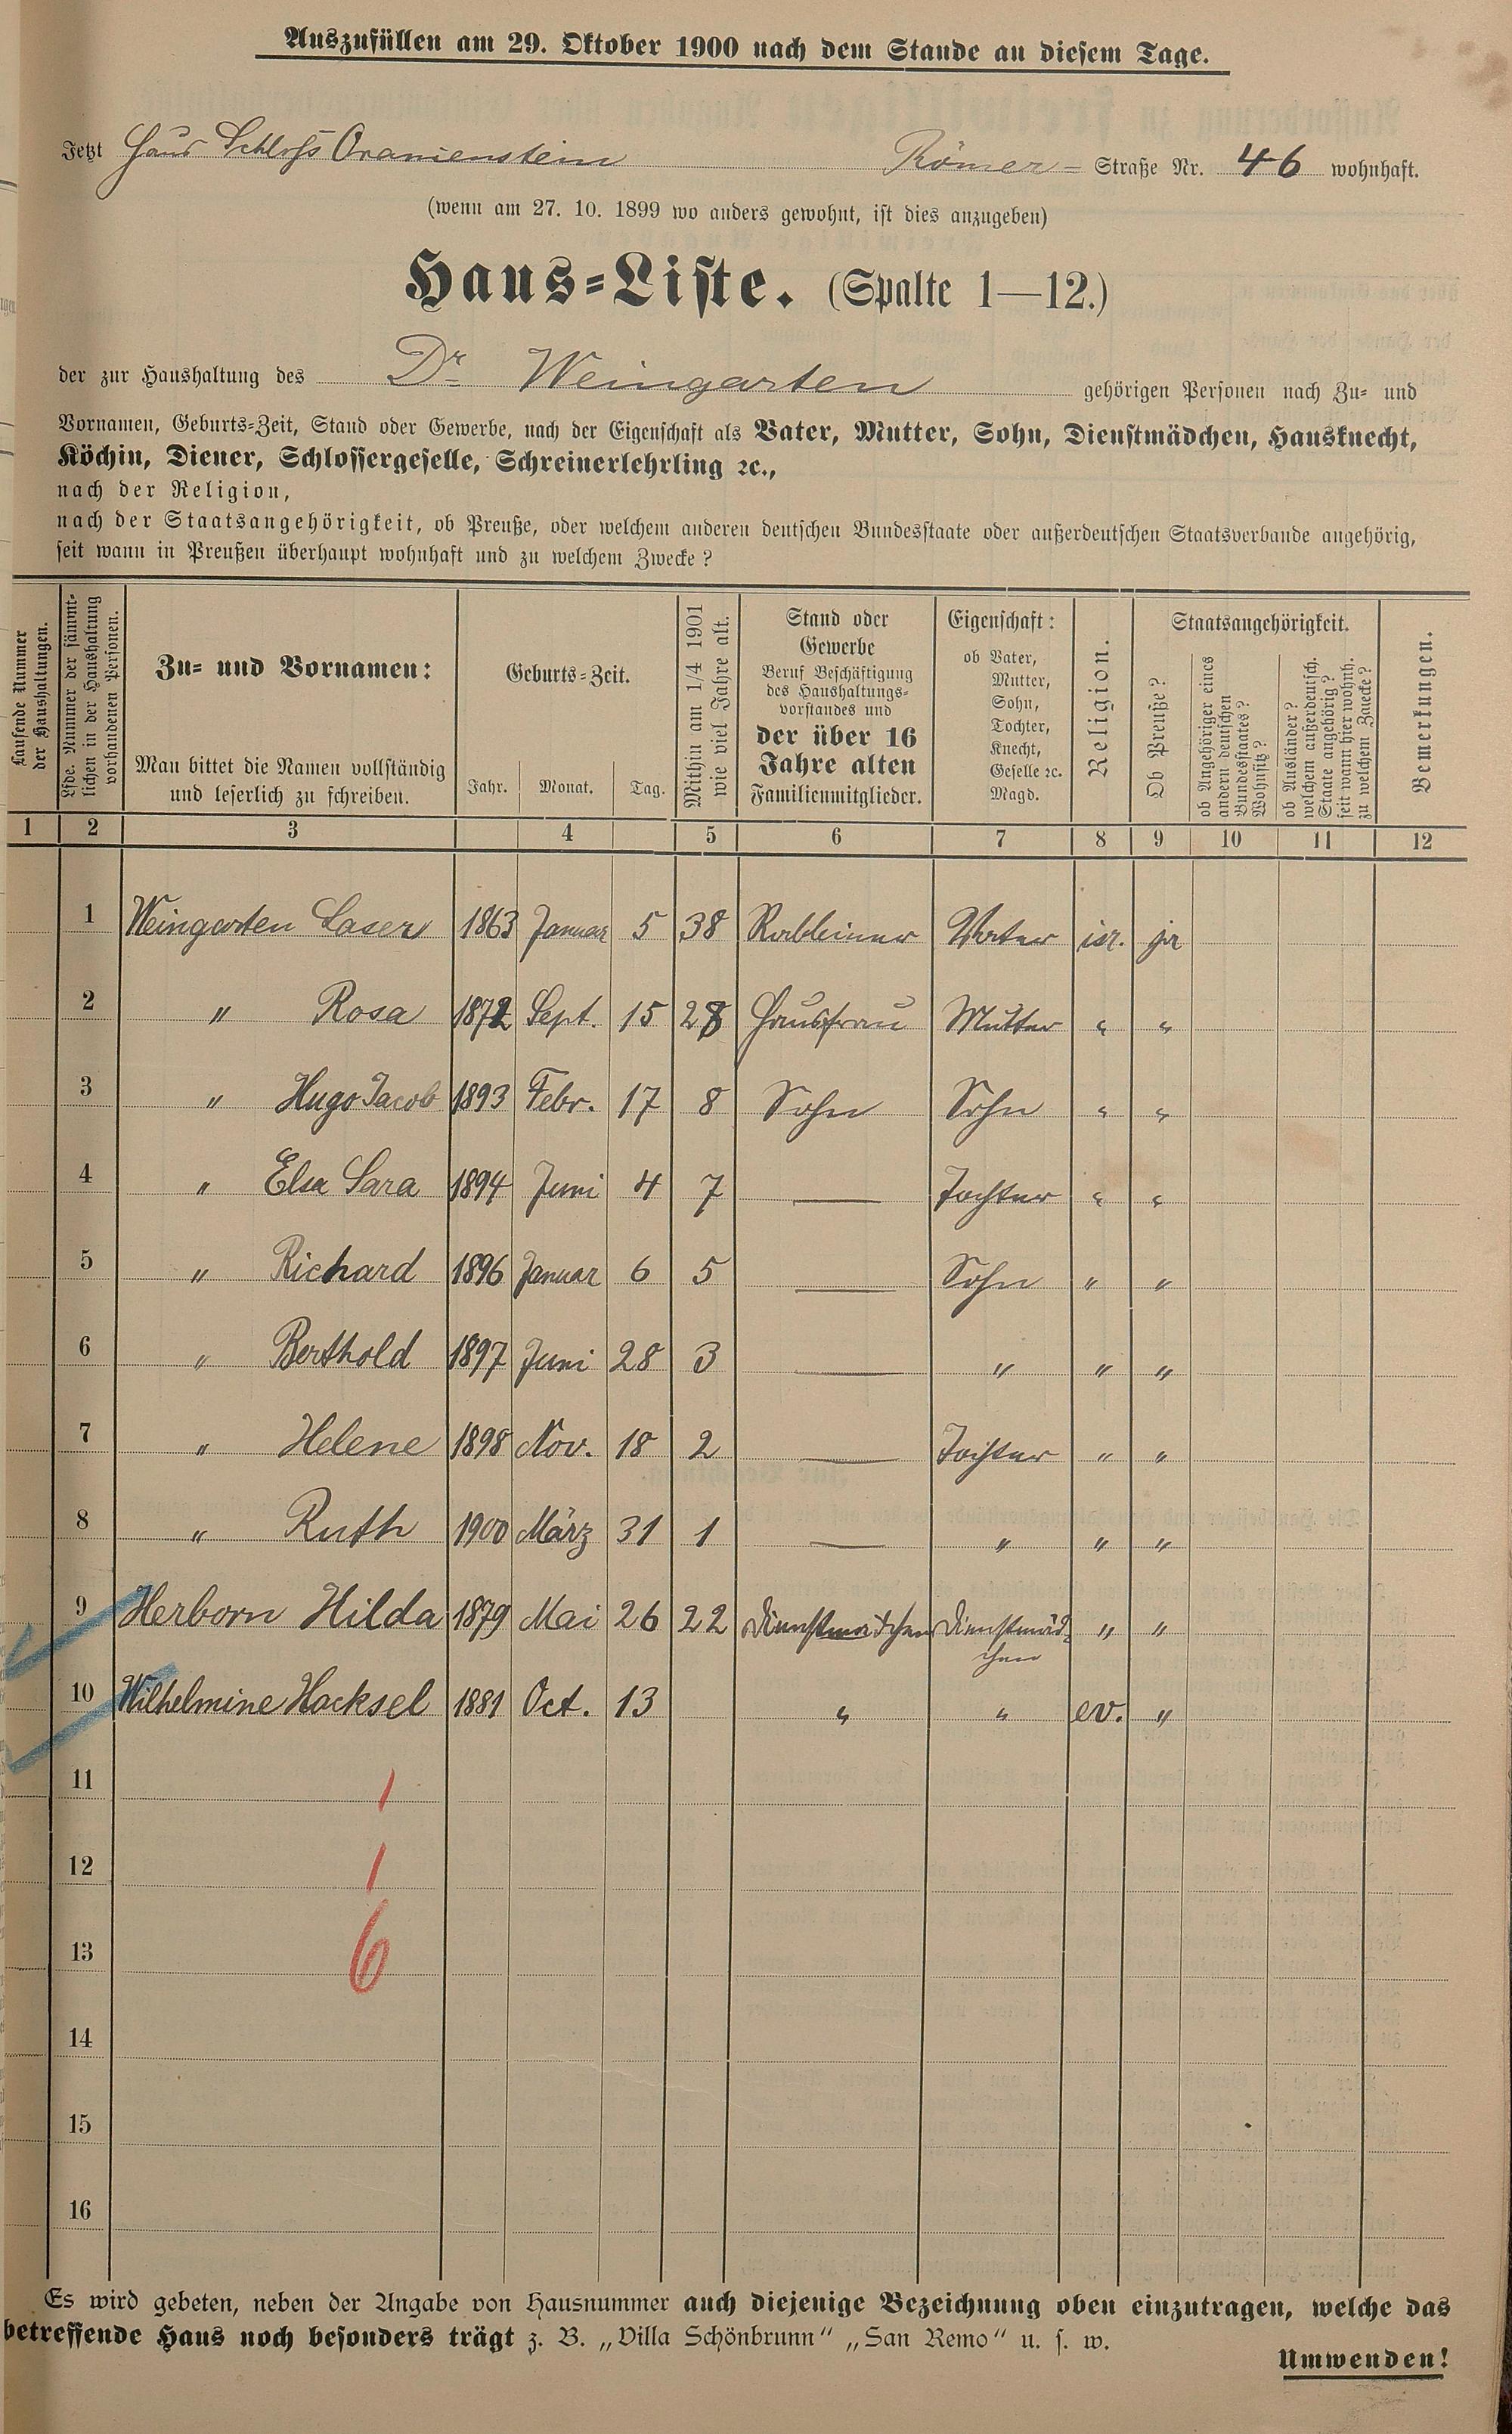 Auszufüllen am 29. Oktober 1900 nach dem Stande an diesem Tage.
Jetzt Haus Schloß Oranienstein Römer- Straße Nr. 46 wohnhaft.
(wenn am 27. 10. 1899 wo anders gewohnt, ist dies anzugeben)
Haus-Liste. (Spalte 1—12.)
der zur Haushaltung des Dr Weingarten gehörigen Personen nach Zu- und
Vornamen, Geburts-Zeit, Stand oder Gewerbe, nach der Eigenschaft als Vater, Mutter, Sohn, Dienstmädchen, Hausknecht,
Köchin, Diener, Schlossergeselle, Schreinerlehrling ꝛc.,
nach der Religion,
nach der Staatsangehörigkeit, ob Preuße, oder welchem anderen deutschen Bundesstaate oder außerdeutschen Staatsverbande angehörig,
seit wann in Preußen überhaupt wohnhaft und zu welchem Zwecke?
Laufende Nummer
der Haushaltungen.
Lfde. Nummer der sämmt-
lichen in der Haushaltung
vorhandenen Personen.
Zu- und Vornamen:
Man bittet die Namen vollständig
und leserlich zu schreiben.
Geburts-Zeit.
Jahr. Monat. Tag.
Mithin am 1/4 1901
wie viel Jahre alt.
Stand oder
Gewerbe
Beruf Beschäftigung
des Haushaltungs-
vorstandes und
der über 16
Jahre alten
Familienmitglieder.
Eigenschaft:
ob Vater,
Mutter,
Sohn,
Tochter,
Knecht,
Geselle ꝛc.
Magd.
Religion.
Staatsangehörigkeit.
Ob Preuße?
ob Angehöriger eines
andern deutschen
Bundesstaates?
Wohnsitz?
ob Ausländer?
welchem außerdeutsch.
Staate angehörig?
seit wann hier wohnh.
zu welchem Zwecke?
Bemerkungen.
1 2 3 4 5 6 7 8 9 10 11 12
1 Weingarten Laser 1863 Januar 5 38 Rabbiner Vater isr. ja
2 " Rosa 1872 Sept. 15 28 Hausfrau Mutter " "
3 " Hugo Jacob 1893 Febr. 17 8 Sohn Sohn " "
4 " Elsa Sara 1894 Juni 4 7 — Tochter " "
5 " Richard 1896 Januar 6 5 — Sohn " "
6 " Berthold 1897 Juni 28 3 — " " "
7 " Helene 1898 Nov. 18 2 — Tochter " "
8 " Ruth 1900 März 31 1 — " " "
9 Herborn Hilda 1879 Mai 26 22 Dienstmädchen Dienstmäd- " "
chen
10 Wilhelmine Hacksel 1881 Oct. 13 " " ev. "
11 1
12 1
13 6
14
15
16
Es wird gebeten, neben der Angabe von Hausnummer auch diejenige Bezeichnung oben einzutragen, welche das
betreffende Haus noch besonders trägt z. B. „Villa Schönbrunn" „San Remo" u. s. w.
Umwenden!